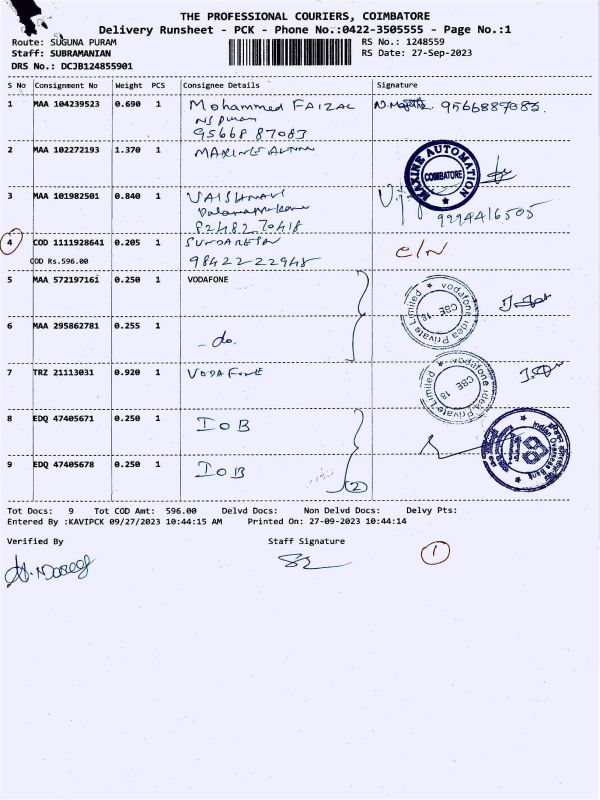 THE PROFESSIONAL COURIERS, COIMBATORE
Delivery Runsheet - PCK - Phone No.:0422-3505555 - Page No.:1
Route: SUGUNA PURAM RS No.: 1248559
Staff: SUBRAMANIAN RS Date: 27-Sep-2023
DRS No.: DCJB124855901
S No Consignment No Weight PCS Consignee Details Signature
1 MAA 104239523 0.690 1 Mohammed FAIZAL 9566887083
NS Puram
95668 87083
2 MAA 102272193 1.370 1 MAXINE
MAXINE AUTOMATION
COIMBATORE
3 MAA 101982501 0.840 1 VAISHNAVI
82482 70418 9994416505
4 COD 1111928641 0.205 1 SUNDARESAN
COD Rs.596.00 98422 22948
5 MAA 572197161 0.250 1 VODAFONE
vodafone idea Private Limited
CBE 18
6 MAA 295862781 0.255 1 - do.
7 TRZ 21113031 0.920 1 VODAFONE
vodafone idea Private Limited
CBE 18
8 EDQ 47405671 0.250 1 IOB
Indian Overseas Bank
9 EDQ 47405678 0.250 1 IOB
(2)
Tot Docs: 9 Tot COD Amt: 596.00 Delvd Docs: Non Delvd Docs: Delvy Pts:
Entered By :KAVIPCK 09/27/2023 10:44:15 AM Printed On: 27-09-2023 10:44:14
Verified By Staff Signature
1